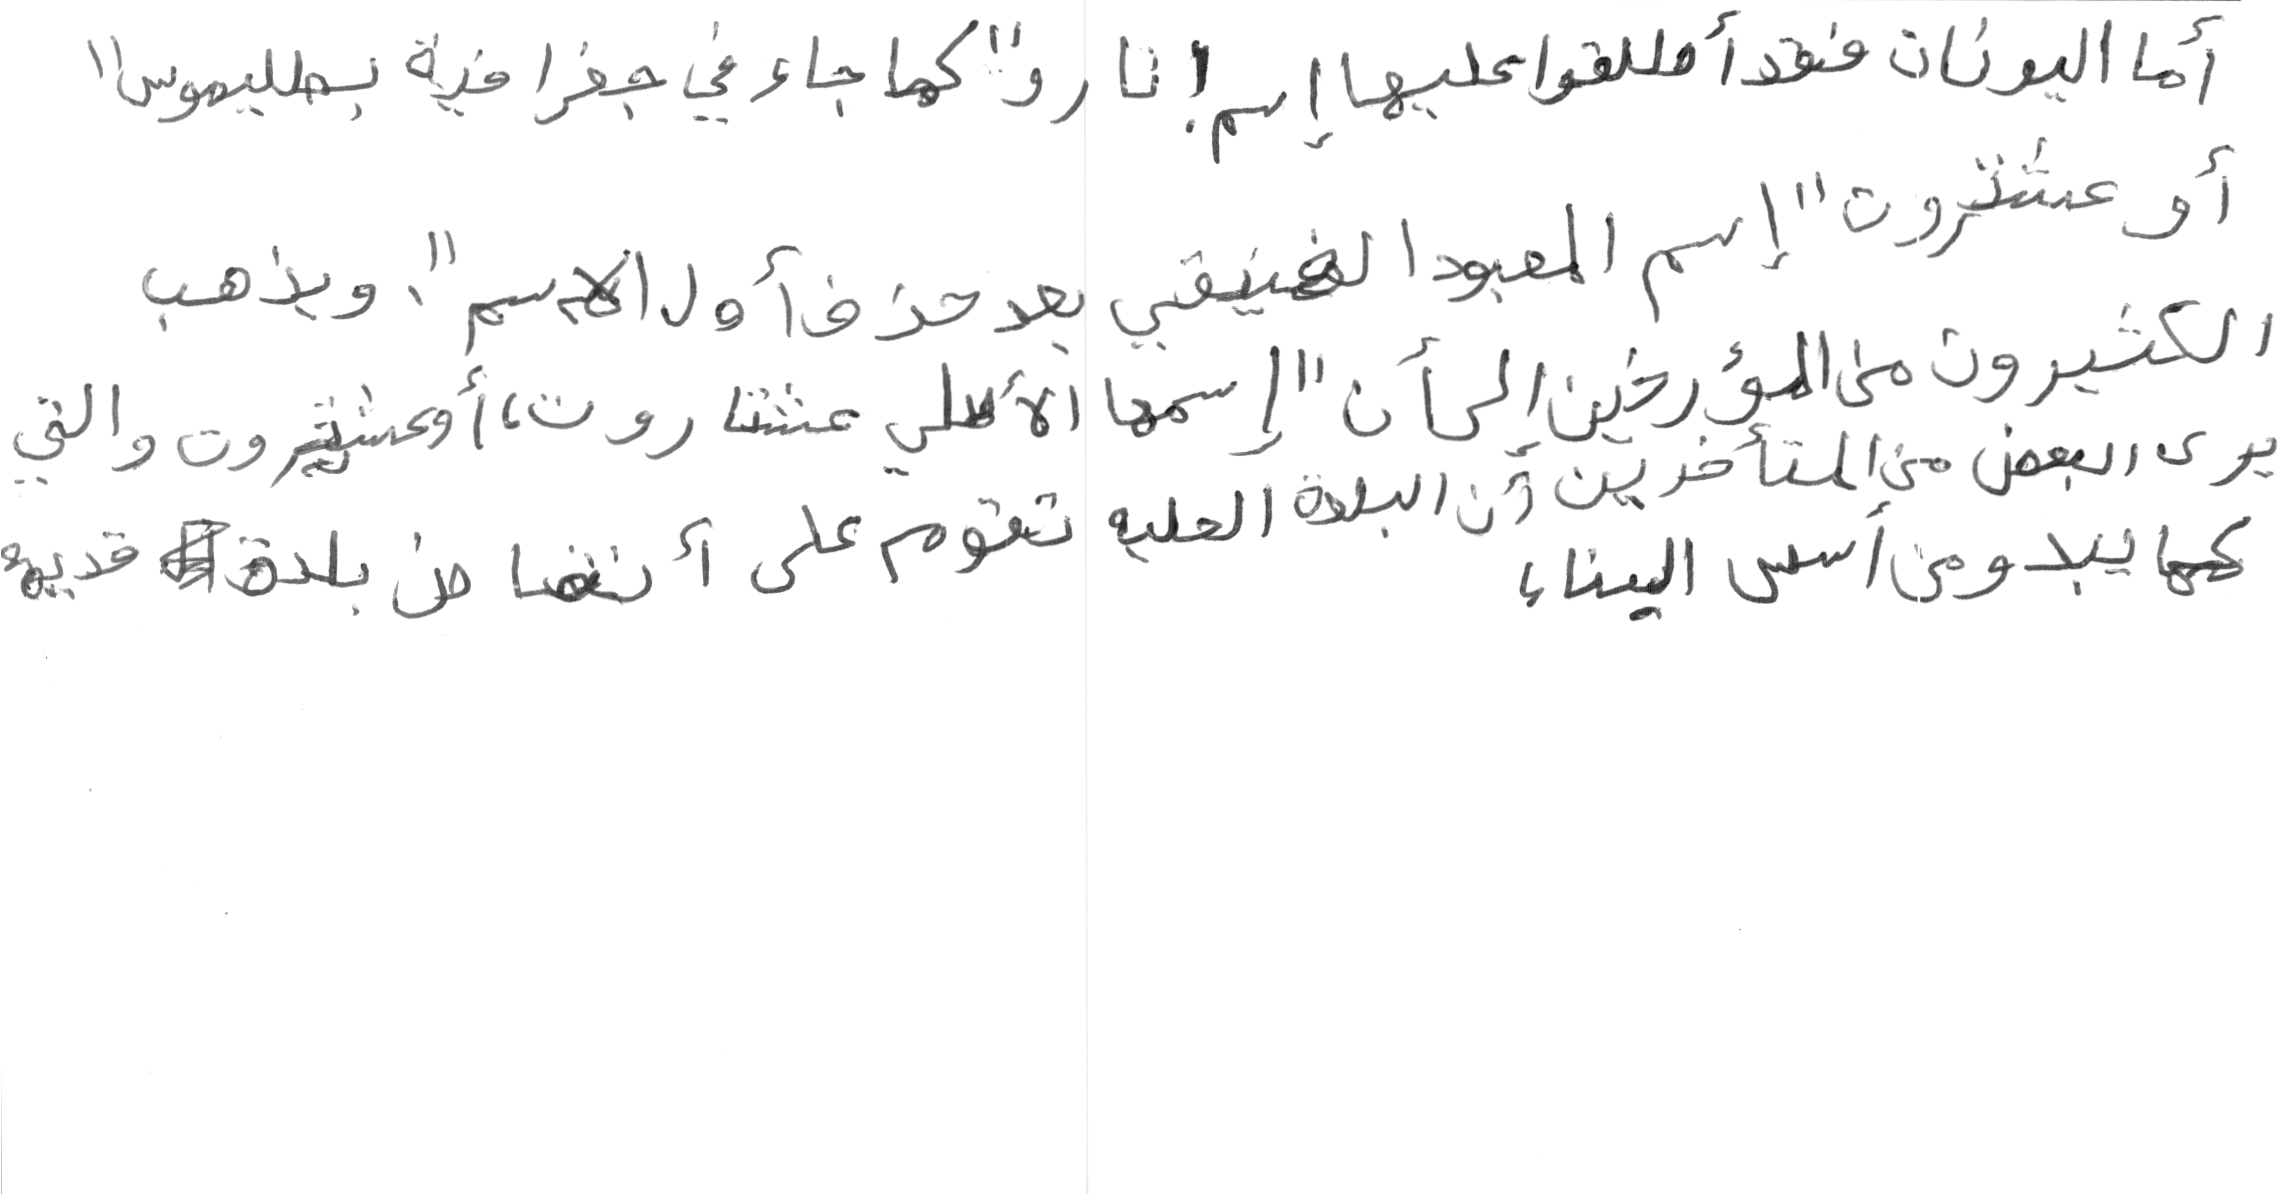 أما اليونان فقد أطلقوا عليها إسم إنارو" كما جاء في جغرافية بطليموس"
أو عشتروت" إسم المعبود الفينيقي بعد حذف أول الاسم". ويذهب
الكثيرون من المؤرخين إلى أن "إسمها الأصلي عشتاروت، أو عشتروت والتي
يرى البعض من المتأخرين أن البلدة الحليه تقوم على أنقاض بلدة قديمة
كما يبدو من أسس البناء،